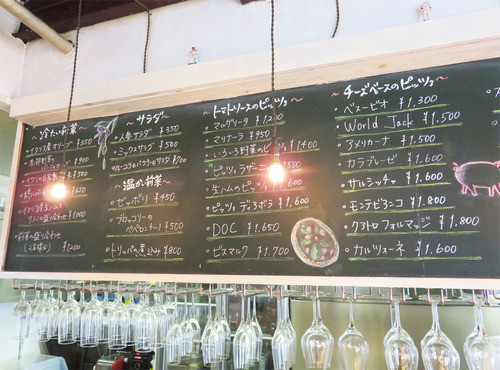 冷たい前菜
¥350
¥900
¥350
¥900
¥1000
前菜の盛り合わせ
(2名様分) ¥1200
サラダ
人参サラダ ¥350
ミックスサラダ ¥500
¥700
温の前菜
ゼッポリ ¥450
ブロッコリーの
ペペロンチーノ ¥500
トリッパの煮込み ¥800
トマトソースのピッツァ
マルゲリータ ¥1200
マリナーラ ¥950
いろいろ野菜のピッツァ ¥1400
ピッツァラザーニャ ¥1500
生ハムのピッツァ ¥1,600
ピッツァ ディアボラ ¥1,600
DOC ¥1.650
ビスマルク ¥1.700
チーズベースのピッツァ
ベスービオ ¥1.300
World Jack ¥1,500
アメリカーナ ¥1.500
カラブレーゼ ¥1.600
サルシッチャ ¥1.600
モンテビアンコ ¥1.800
クアトロフォルマッジ ¥1.800
カルツォーネ ¥1.600